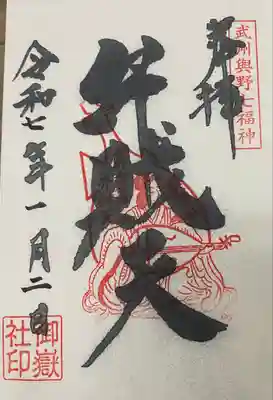 武州與野七福神
奉拝
弁財天
令和七年一月二日
御嶽
社印